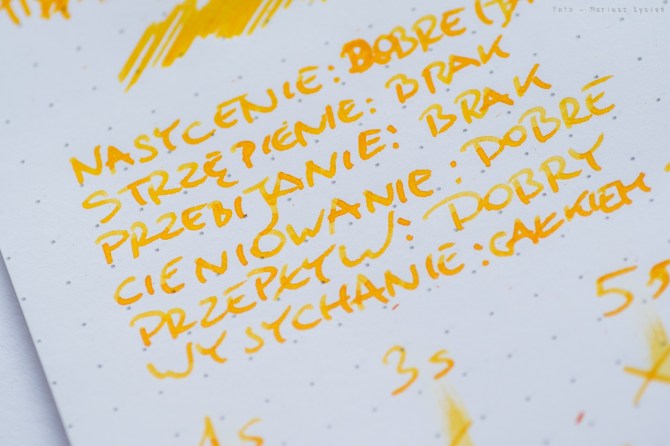 Foto - Mariusz Łysień
NASYCENIE: DOBRE
STRZĘPIENIE: BRAK
PRZEBIJANIE: BRAK
CIENIOWANIE: DOBRE
PRZEPŁYW: DOBRY
WYSYCHANIE: CAŁKIEM
1s
3s
5s